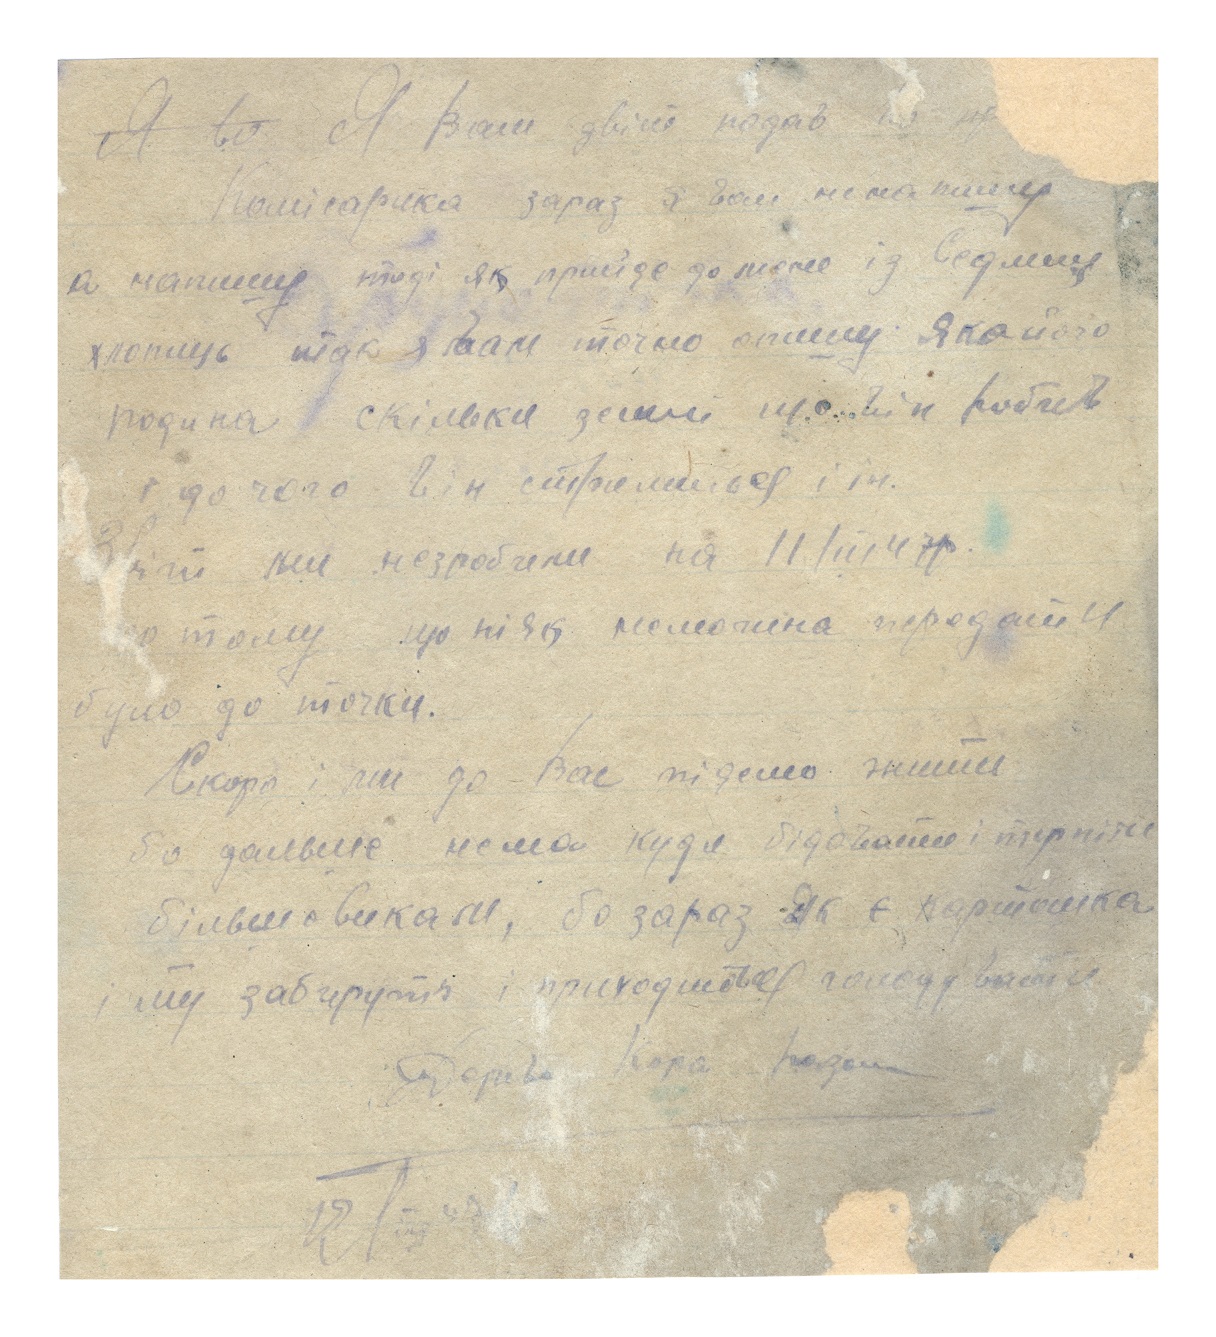 Я Вам звіт подав по
Комісарика зараз я вам ненапишу
а напишу тоді як прийде до мене із Седлищ
хлопець так я вам точно опишу яка його
родина скільки землі що він робив
і до чого він стремиться і ін.
Звіт ми незробили на 11/III 47р.
по тому що ніяк неможна передати
було до точки.
Скоро і ми до Вас підемо жити
бо дальше нема куди бідовати і терпіти
більшовикам, бо зараз як є картошка
і ту заберуть і приходиться голодувати
12/III 47